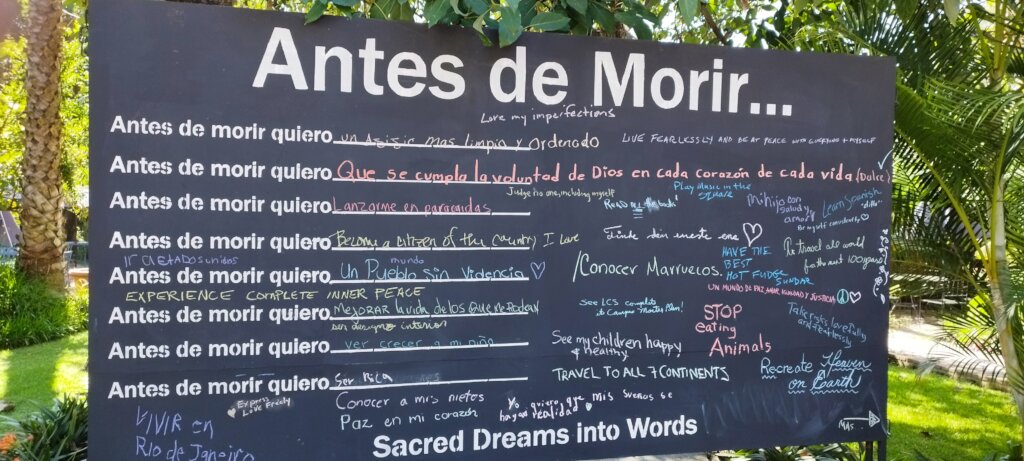 Antes de Morir...
Love my imperfections
Antes de morir quiero un mas limpio y Ordenado
LIVE FEARLESSLY AND BE AT PEACE WITH MYSELF
Antes de morir quiero Que se cumpla la voluntad de Dios en cada corazón de cada vida (Dulce)
Judge no one, including myself
Play music in the square
Antes de morir quiero Lanzarme en paracaidas
Read all the
Mi hija con salud y amor
Learn Spanish
Be myself
Antes de morir quiero Become a citizen of the country I love
HAVE THE BEST HOT FUDGE SUNDAE
travel the world for the next 100 years
IR ESTADOS unidos
mundo
Antes de morir quiero Un Pueblo Sin Violencia
Conocer Marruecos.
UN MUNDO DE PAZ, AMOR, IGUALDAD Y JUSTICIA
EXPERIENCE COMPLETE INNER PEACE
Antes de morir quiero Mejorar la vida de los que me Rodan
ser interior
See LCS complete
its Campus Master Plan!
STOP
eating
Animals
Take risks, love fully and fearlessly
Antes de morir quiero ver crecer a mi niño
See my children happy
& healthy
Antes de morir quiero Ser Rica
TRAVEL TO ALL 7 CONTINENTS
Recreate Heaven
on Earth
Express
Love Freely
Conocer a mis nietos
Paz en mi corazón
Yo quiero que mis sueños se
hagan realidad
VIVIR en
Rio de Janeiro
Sacred Dreams into Words
MAS...